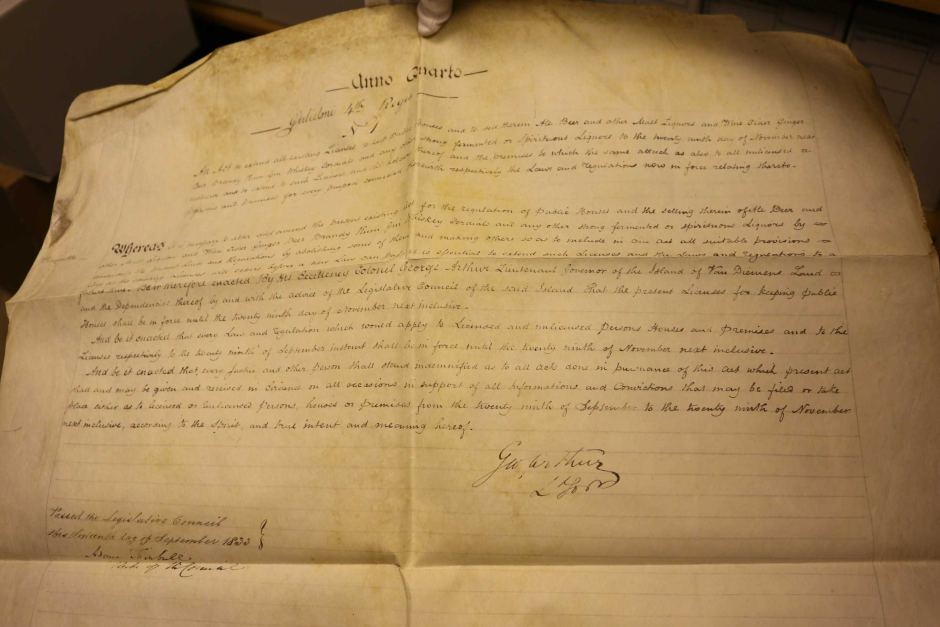 Anno Quarto
Gulielmi 4th Regis
No 7
An Act to extend all existing Licenses to keep Public Houses and to sell therein Ale Beer and other Malt Liquors and Wine Cider Ginger
Beer Brandy Rum Gin Whiskey Cordials and any other strong fermented or Spirituous Liquors to the twenty ninth day of November next
inclusive and to extend to said Licenses and the Licensed thereof and the premises to which the same attach as also to all unlicensed
Persons and Premises for every purpose connected therewith respectively the Laws and regulations now in force relating thereto.
Whereas it is necessary to alter and amend the present existing Act for the regulation of Public Houses and the selling therein of Ale Beer and
other Malt Liquors and Wine Cider Ginger Beer Brandy Rum Gin Whiskey Cordials and any other strong fermented or spirituous Liquors by
and Regulations by abolishing some of them and making others so as to include in one act all suitable provisions
before a new Law can be it is expedient to extend such Licenses and the Laws and regulations to a
Be it therefore enacted By His Excellency Colonel George Arthur Lieutenant Governor of the Island of Van Diemens Land
and the Dependencies thereof by and with the advice of the Legislative Council of the said Island That the present Licenses for keeping public
Houses shall be in force until the twenty ninth day of November next inclusive.
And be it enacted that every Law and regulation which would apply to Licensed and unlicensed Persons Houses and Premises and to the
Licenses respectively to the twenty ninth of September instant shall be in force until the twenty ninth of November next inclusive.
And be it enacted that every Justice and other Person shall stand indemnified as to all acts done in pursuance of this Act which present act
shall and may be given and received in Evidence on all occasions in support of all Informations and Convictions that may be filed or take
place either as to licensed or unlicensed Persons, houses or premises from the twenty ninth of September to the twenty ninth of November
next inclusive, according to the Spirit, and true intent and meaning hereof.
Geo, Arthur
Lt Gov
Passed the Legislative Council
this day of September 1833
Adam Turnbull
Clerk of the Council